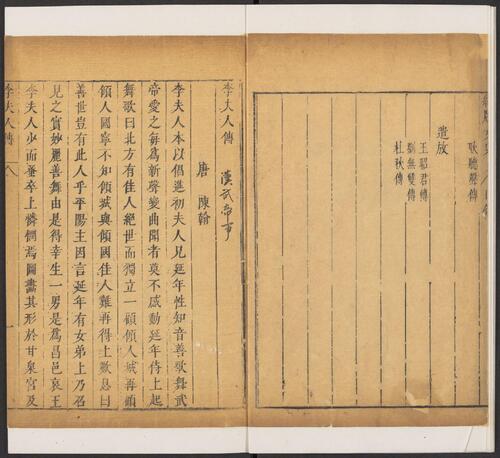 耿聽聲傳
遣放
王昭君傳
劉無雙傳
杜秋傳
李夫人傳
漢武帝事
唐 陳翰
李夫人本以倡進初夫人兄延年性知音善歌舞武
帝愛之每為新聲變曲聞者莫不感動延年侍上起
舞歌曰北方有佳人絕世而獨立一顧傾人城再顧
傾人國寧不知傾城與傾國佳人難再得上歎息曰
善世豈有此人乎平陽主因言延年有女弟上乃召
見之實妙麗善舞由是得幸生一男是為昌邑哀王
李夫人少而蚤卒上憐憫焉圖畫其形於甘泉宮及
李夫人傳
一